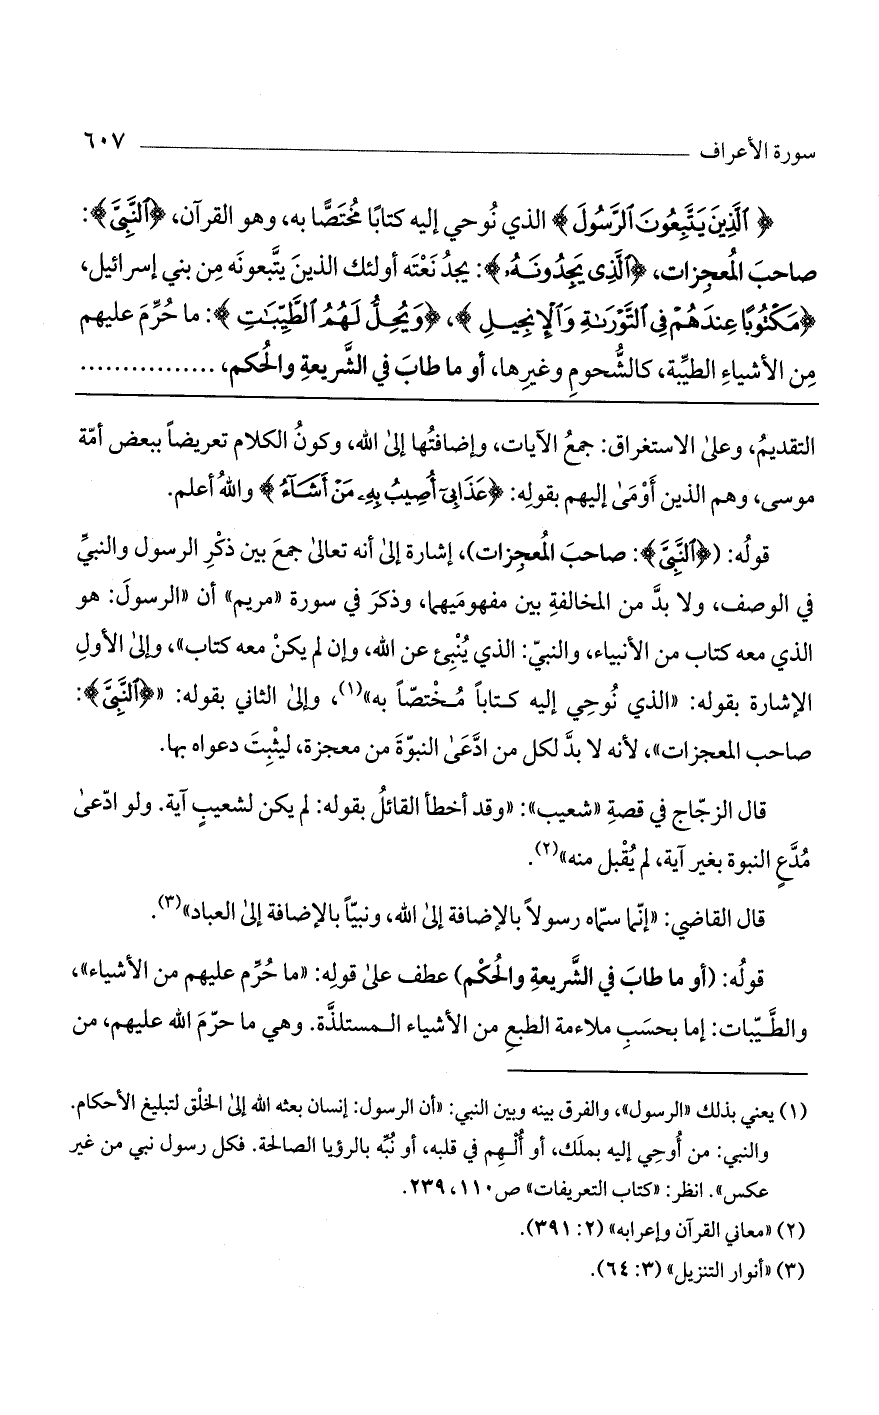 سورة الأعراف ٦٠٧
﴿ ٱلَّذِينَ يَتَّبِعُونَ ٱلرَّسُولَ ﴾ الذي نُوحي إليه كتابًا مُختَصًّا به، وهو القرآن، ﴿ٱلنَّبِىَّ﴾:
صاحبَ المُعجِزات، ﴿ٱلَّذِى يَجِدُونَهُۥ﴾: يجدُ نَعْتَه أولئك الذينَ يتَّبعونَه مِن بني إسرائيل،
﴿مَكْتُوبًا عِندَهُمْ فِى ٱلتَّوْرَىٰةِ وَٱلْإِنجِيلِ ﴾، ﴿وَيُحِلُّ لَهُمُ ٱلطَّيِّبَٰتِ ﴾: ما حُرِّمَ عليهم
مِن الأشياءِ الطيِّبة، كالشُّحومِ وغيرِها، أو ما طابَ في الشَّريعةِ والحُكم، ................
التقديمُ، وعلىٰ الاستغراق: جمعُ الآيات، وإضافتُها إلىٰ الله، وكونُ الكلام تعريضاً ببعض أمّة
موسى، وهم الذين أَوْمَىٰ إليهم بقولِه: ﴿عَذَابِىٓ أُصِيبُ بِهِۦ مَنْ أَشَآءُ ﴾ واللهُ أعلم.
قولُه: (﴿ٱلنَّبِىَّ﴾: صاحبَ المُعجِزات)، إشارة إلىٰ أنه تعالىٰ جمعَ بين ذكْرِ الرسول والنبيِّ
في الوصف، ولا بدَّ من المخالفةِ بين مفهومَيهما، وذكرَ في سورة «مريم» أن «الرسولَ: هو
الذي معه كتاب من الأنبياء، والنبيّ: الذي يُنْبِئ عن الله، وإن لم يكنْ معه كتاب»، وإلىٰ الأولِ
الإشارة بقوله: «الذي نُوحِي إليه كتاباً مُخْتصّاً به»(١)، وإلىٰ الثاني بقوله: «﴿ٱلنَّبِىَّ﴾:
صاحب المعجزات»، لأنه لا بدَّ لكل من ادَّعَىٰ النبوّةَ من معجزة، ليثْبِتَ دعواه بها.
قال الزجّاج في قصةِ «شعيب»: «وقد أخطأ القائلُ بقوله: لم يكن لشعيبٍ آية. ولو ادّعىٰ
مُدَّعٍ النبوة بغير آية، لم يُقْبل منه»(٢).
قال القاضي: «إنّما سمّاه رسولاً بالإضافة إلىٰ الله، ونبيّاً بالإضافة إلىٰ العباد»(٣).
قولُه: (أو ما طابَ في الشَّريعةِ والحُكْم) عطف علىٰ قولِه: «ما حُرِّم عليهم من الأشياء»،
والطَّيّبات: إما بحسَبِ ملاءمة الطبعِ من الأشياء المستلذَّة. وهي ما حرّمَ الله عليهم، من
(١) يعني بذلك «الرسول»، والفرق بينه وبين النبي: «أن الرسول: إنسان بعثه الله إلىٰ الخلْق لتبليغ الأحكام.
والنبي: من أُوحِي إليه بملَك، أو أُلْهِم في قلبه، أو نُبِّه بالرؤيا الصالحة. فكل رسول نبي من غير
عكس». انظر: «كتاب التعريفات» ص١١٠، ٢٣٩.
(٢) «معاني القرآن وإعرابه» (٢: ٣٩١).
(٣) «أنوار التنزيل» (٣: ٦٤).